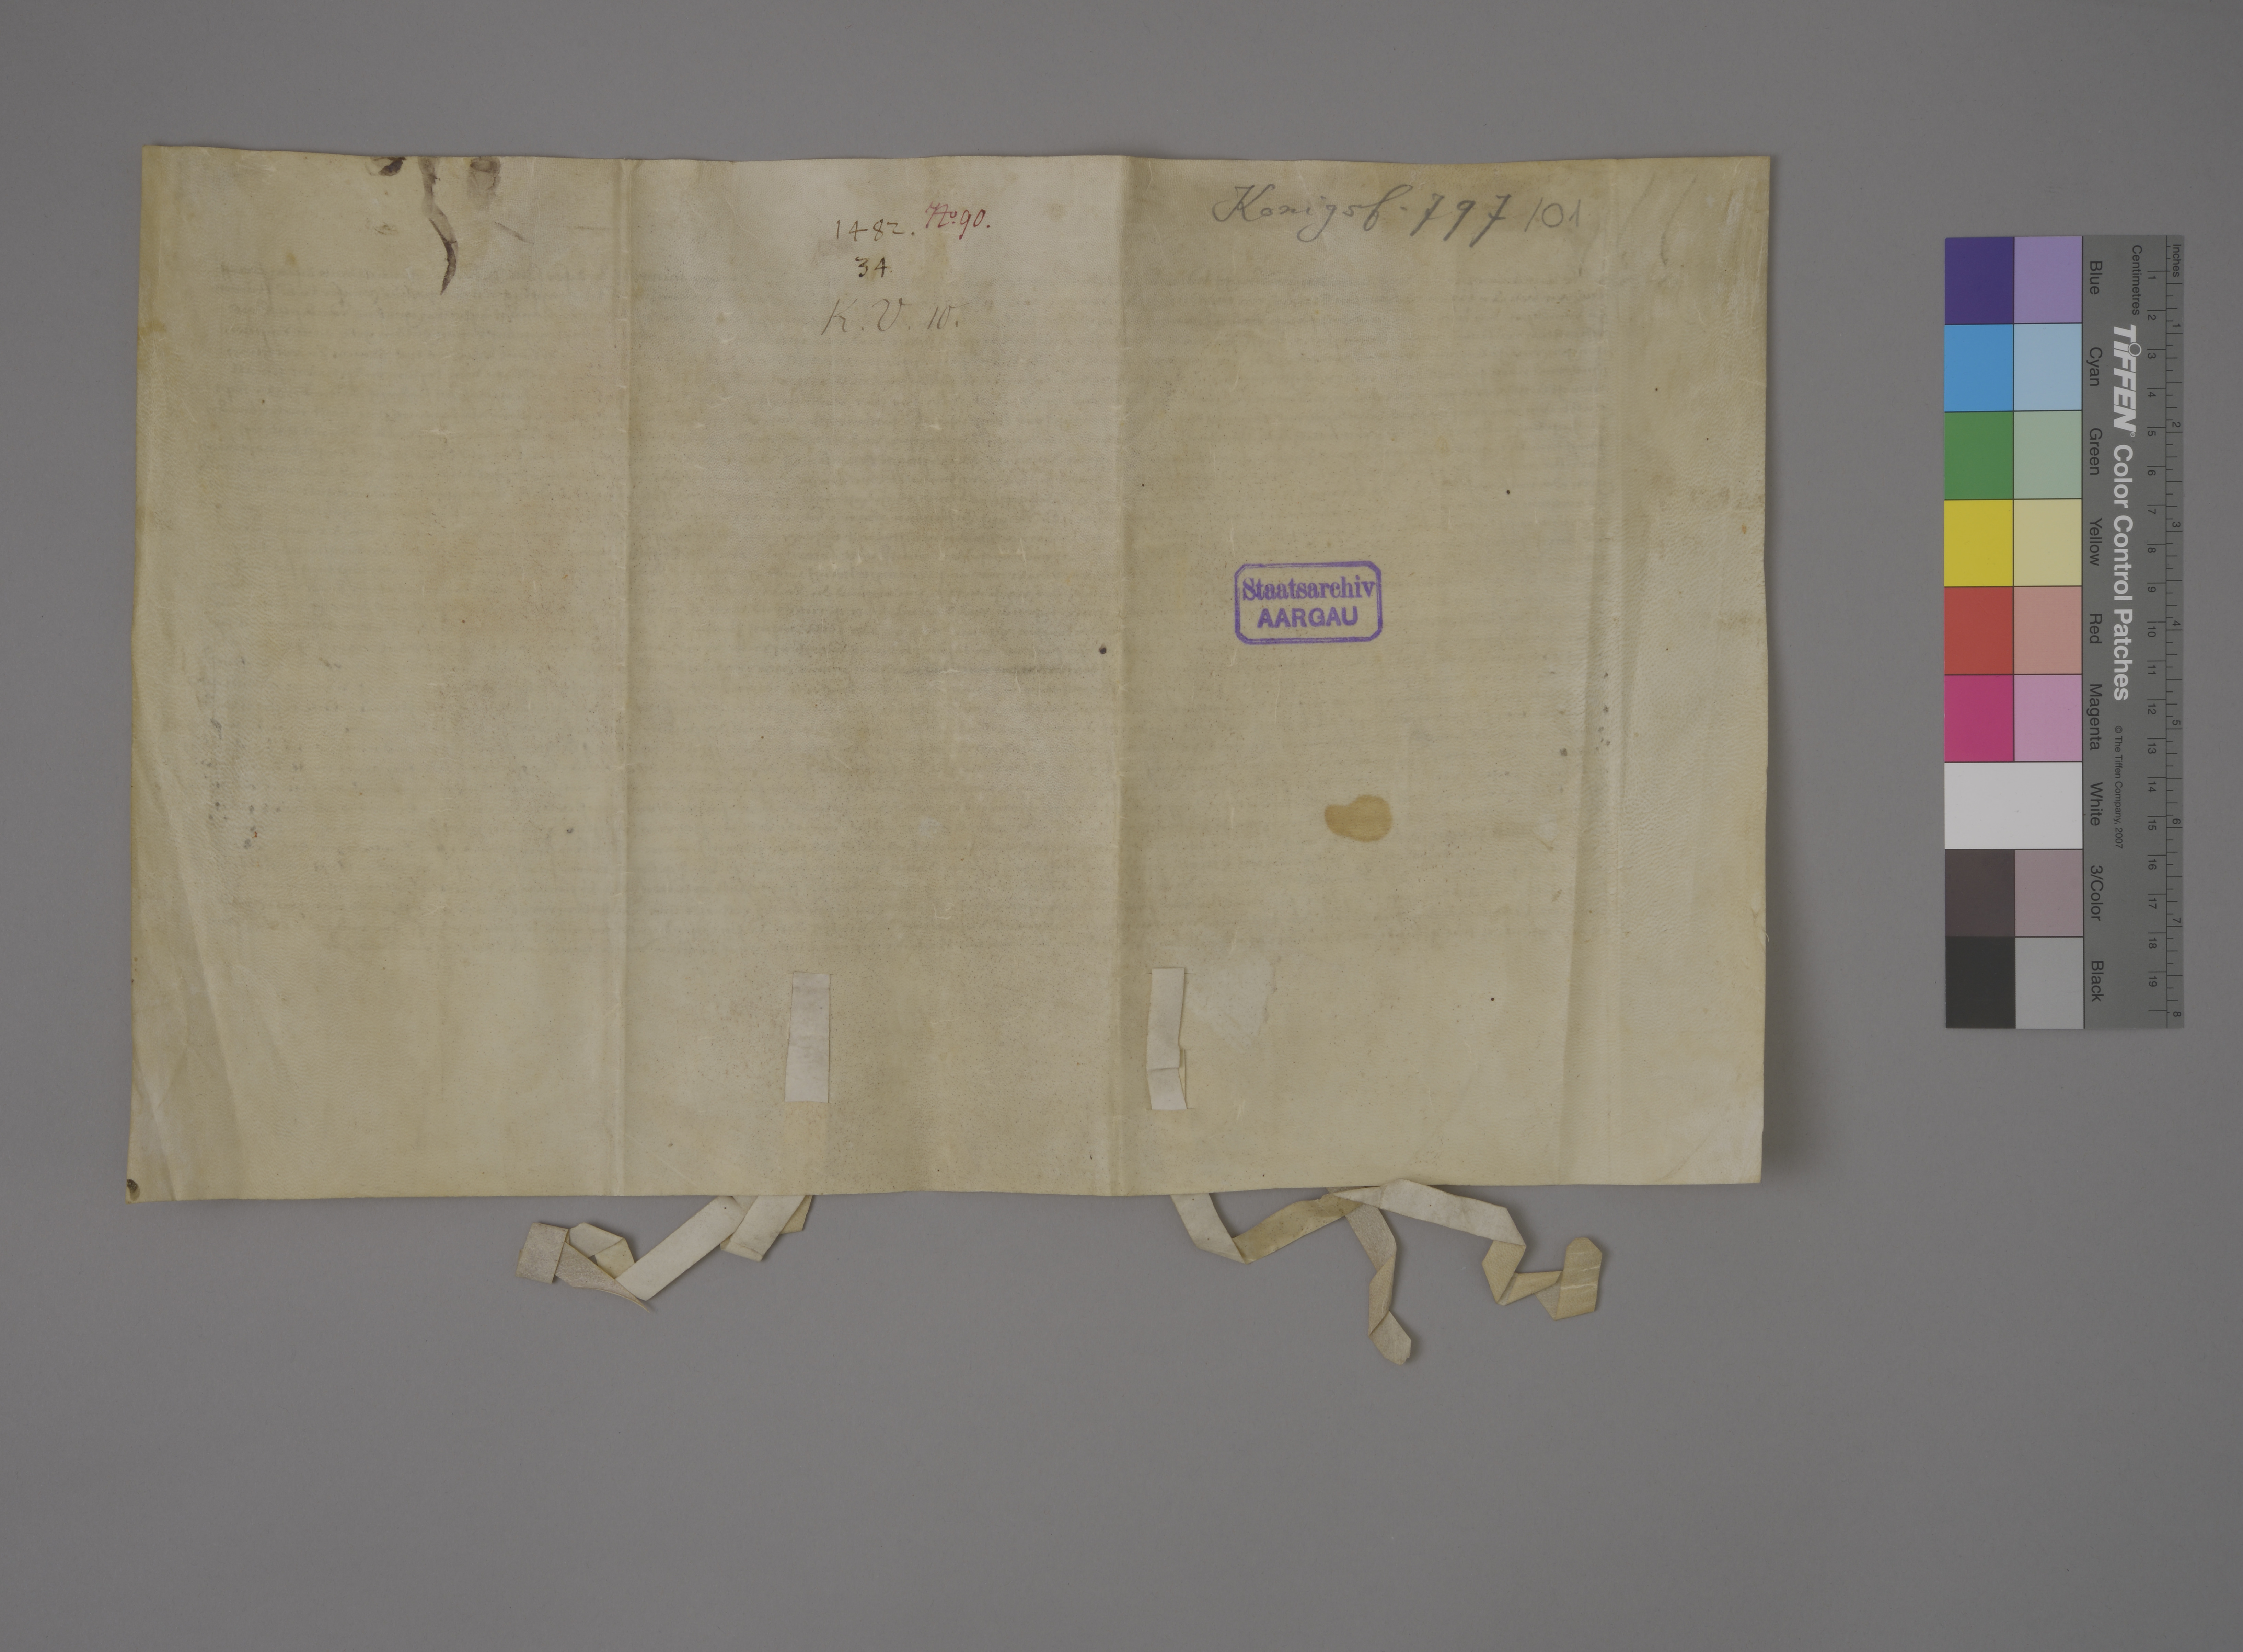 1482. No. 90.
34
K. V. 10.
Königsf. 797 101
Staatsarchiv
AARGAU
Inches
Centimetres
1 2 3 4 5 6 7 8 9 10 11 12 13 14 15 16 17 18 19
1 2 3 4 5 6 7 8
TIFFEN® Color Control Patches
© The Tiffen Company, 2007
Blue
Cyan
Green
Yellow
Red
Magenta
White
3/Color
Black